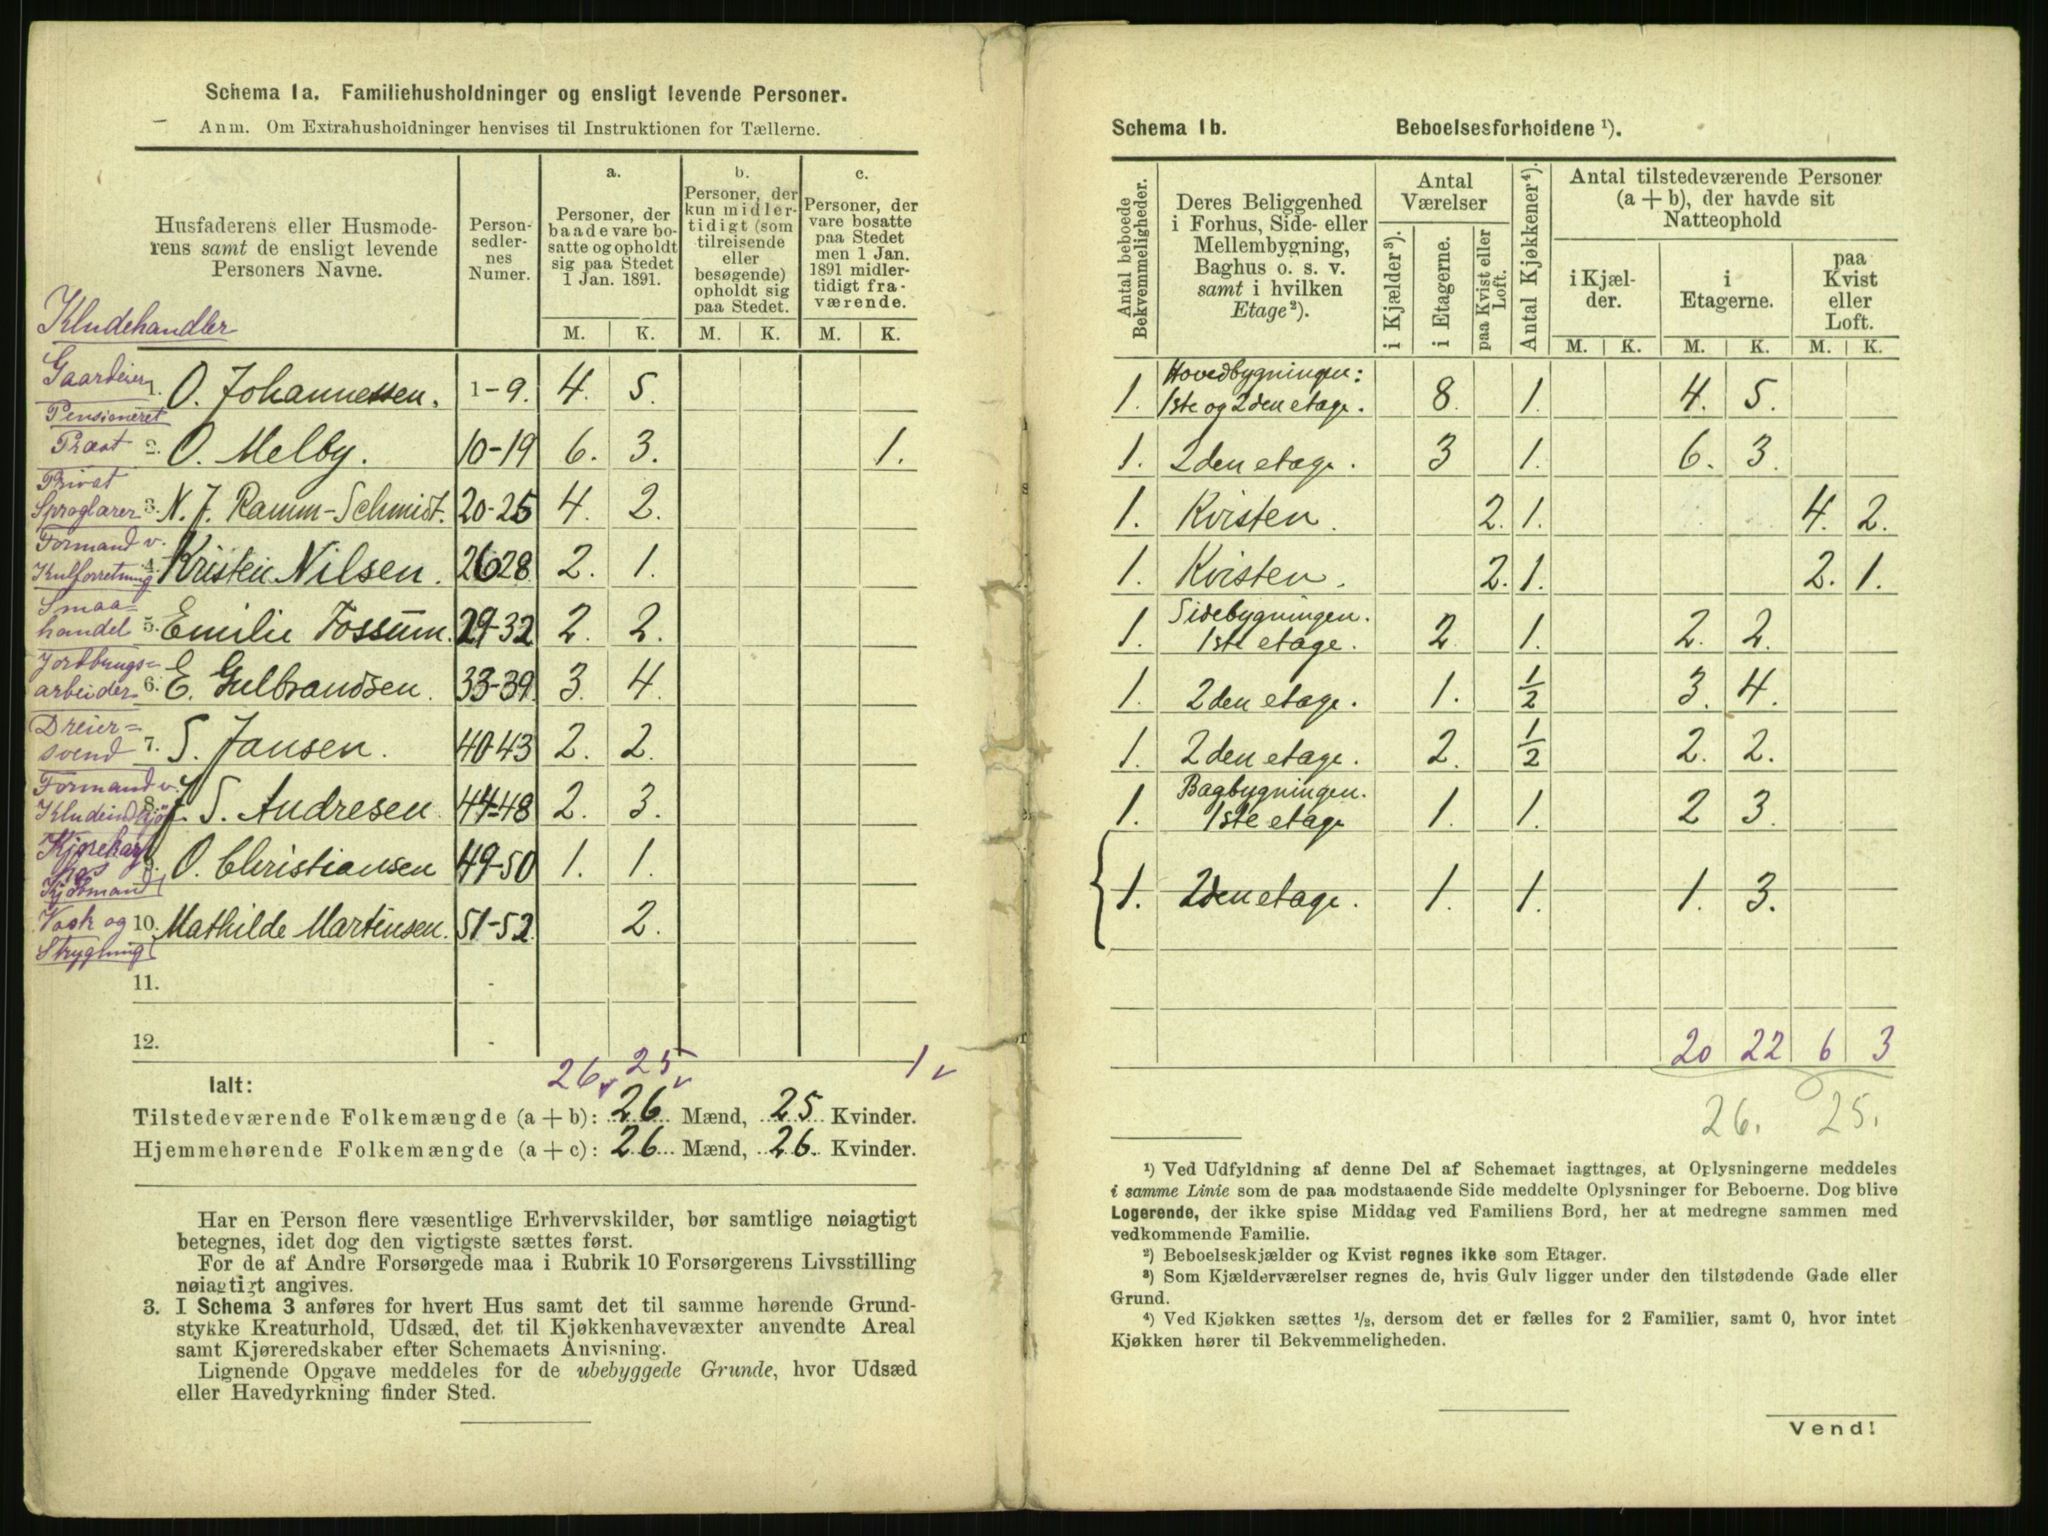 Schema 1a. Familiehusholdninger og ensligt levende Personer.
Anm. Om Extrahusholdninger henvises til Instruktionen for Tællerne.
Husfaderens eller Husmoderens samt de ensligt levende Personers Navne.
Personsedlernes Numer.
a. Personer, der baade vare bosatte og opholdt sig paa Stedet 1 Jan. 1891.
b. Personer, der kun midlertidigt (som tilreisende eller besøgende) opholdt sig paa Stedet.
c. Personer, der vare bosatte paa Stedet men 1 Jan. 1891 midlertidigt fraværende.
M. K. M. K. M. K.
Kludehandler
Gaardeier 1. O. Johannessen. 1-9. 4. 5.
Pensioneret
Præst 2. O. Melby. 10-19 6. 3. 1.
Privat
Sproglærer 3. N. J. Ramm-Schmidt. 20-25 4. 2.
Formand v.
Kulforretning 4. Kristen Nilsen. 26-28 2. 1.
Smaa=
handel 5. Emilie Fossum. 29-32 2. 2.
Jordbrugs=
arbeider 6. E. Gulbrandsen. 33-39. 3. 4.
Dreier=
svend 7. S. Jansen. 40-43 2. 2.
Formand v.
8. J. S. Andresen. 44-48 2. 3.
9. O. Christiansen 49-50 1. 1.
Kjøbmand
Vask og 10. Mathilde Martinsen. 51-52. 2.
Strygning
11.
12.
26 25 1
Ialt:
Tilstedeværende Folkemængde (a + b): 26 Mænd, 25 Kvinder.
Hjemmehørende Folkemængde (a + c): 26 Mænd, 26 Kvinder.
Har en Person flere væsentlige Erhvervskilder, bør samtlige nøiagtigt
betegnes, idet dog den vigtigste sættes først.
For de af Andre Forsørgede maa i Rubrik 10 Forsørgerens Livsstilling
nøiagtigt angives.
3. I Schema 3 anføres for hvert Hus samt det til samme hørende Grund-
stykke Kreaturhold, Udsæd, det til Kjøkkenhavevæxter anvendte Areal
samt Kjøreredskaber efter Schemaets Anvisning.
Lignende Opgave meddeles for de ubebyggede Grunde, hvor Udsæd
eller Havedyrkning finder Sted.
Schema 1b. Beboelsesforholdene ¹).
Antal beboede Bekvemmeligheder.
Deres Beliggenhed i Forhus, Side- eller Mellembygning, Baghus o. s. v. samt i hvilken Etage ²).
Antal Værelser
i Kjælder ³).
i Etagerne.
paa Kvist eller Loft.
Antal Kjøkkener ⁴).
Antal tilstedeværende Personer (a + b), der havde sit Natteophold
i Kjælder.
i Etagerne.
paa Kvist eller Loft.
M. K. M. K. M. K.
Hovedbygningen:
1. 1ste og 2den etage. 8. 1. 4. 5.
1. 2den etage. 3 1. 6. 3.
1. Kvisten. 2. 1. 4. 2.
1. Kvisten. 2. 1. 2. 1.
Sidebygningen.
1. 1ste etage. 2. 1. 2. 2.
1. 2den etage. 1. 1/2 3. 4.
1. 2den etage. 2. 1/2 2. 2.
Bagbygningen.
1. 1ste etage 1. 1. 2 3.
1. 2den etage. 1. 1. 1. 3.
20 22 6 3
26. 25.
¹) Ved Udfyldning af denne Del af Schemaet iagttages, at Oplysningerne meddeles
i samme Linie som de paa modstaaende Side meddelte Oplysninger for Beboerne. Dog blive
Logerende, der ikke spise Middag ved Familiens Bord, her at medregne sammen med
vedkommende Familie.
²) Beboelseskjælder og Kvist regnes ikke som Etager.
³) Som Kjælderværelser regnes de, hvis Gulv ligger under den tilstødende Gade eller
Grund.
⁴) Ved Kjøkken sættes ½, dersom det er fælles for 2 Familier, samt 0, hvor intet
Kjøkken hører til Bekvemmeligheden.
Vend!